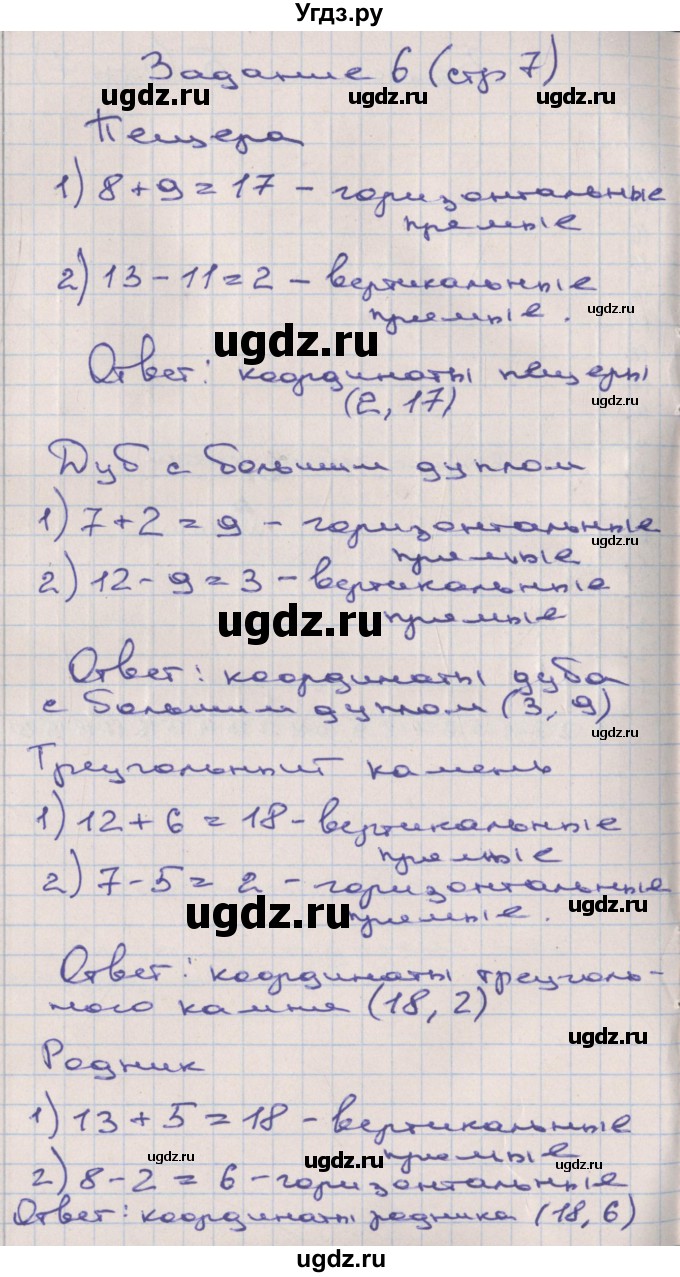 Угдз.ру
Задание 6 (стр 7)
ugdz.ru ugdz.ru ugdz.ru
Пещера
1) 8 + 9 = 17 - горизонтальные
прямые
2) 13 - 11 = 2 - вертикальные
прямые.
ugdz.ru
ugdz.ru
Ответ: координаты пещеры
(2, 17)
ugdz.ru
Дуб с большим дуплом
1) 7 + 2 = 9 - горизонтальные
прямые
ugdz.ru
2) 12 - 9 = 3 - вертикальные
прямые
ugdz.ru
Ответ: координаты дуба
с большим дуплом (3, 9)
ugdz.ru
Треугольный камень
1) 12 + 6 = 18 - вертикальные
прямые
2) 7 - 5 = 2 - горизонтальные
прямые.
ugdz.ru
ugdz.ru
Ответ: координаты треуголь-
ного камня (18, 2)
ugdz.ru
Родник
1) 13 + 5 = 18 - вертикальные
прямые
ugdz.ru ugdz.ru
2) 8 - 2 = 6 - горизонтальные
Ответ: координаты родника (18, 6)
ugdz.ru